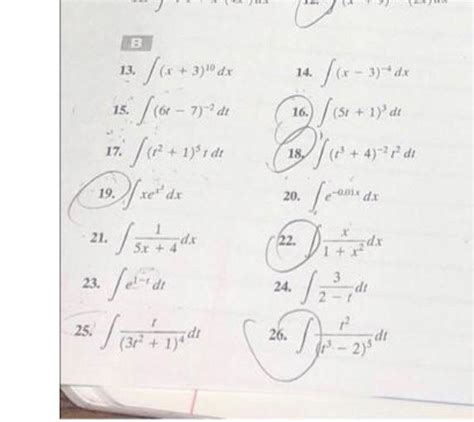 B
13. ∫(x + 3)¹⁰ dx 14. ∫(x − 3)⁻⁴ dx
15. ∫(6t − 7)⁻² dt 16. ∫(5t + 1)³ dt
17. ∫(t² + 1)⁵ t dt 18. ∫(t³ + 4)⁻² t² dt
19. ∫xe^(x²) dx 20. ∫e^(−0.01x) dx
21. ∫1/(5x + 4) dx 22. ∫x/(1 + x²) dx
23. ∫e^(1−t) dt 24. ∫3/(2 − t) dt
25. ∫t/(3t² + 1)⁴ dt 26. ∫t²/(t³ − 2)⁵ dt